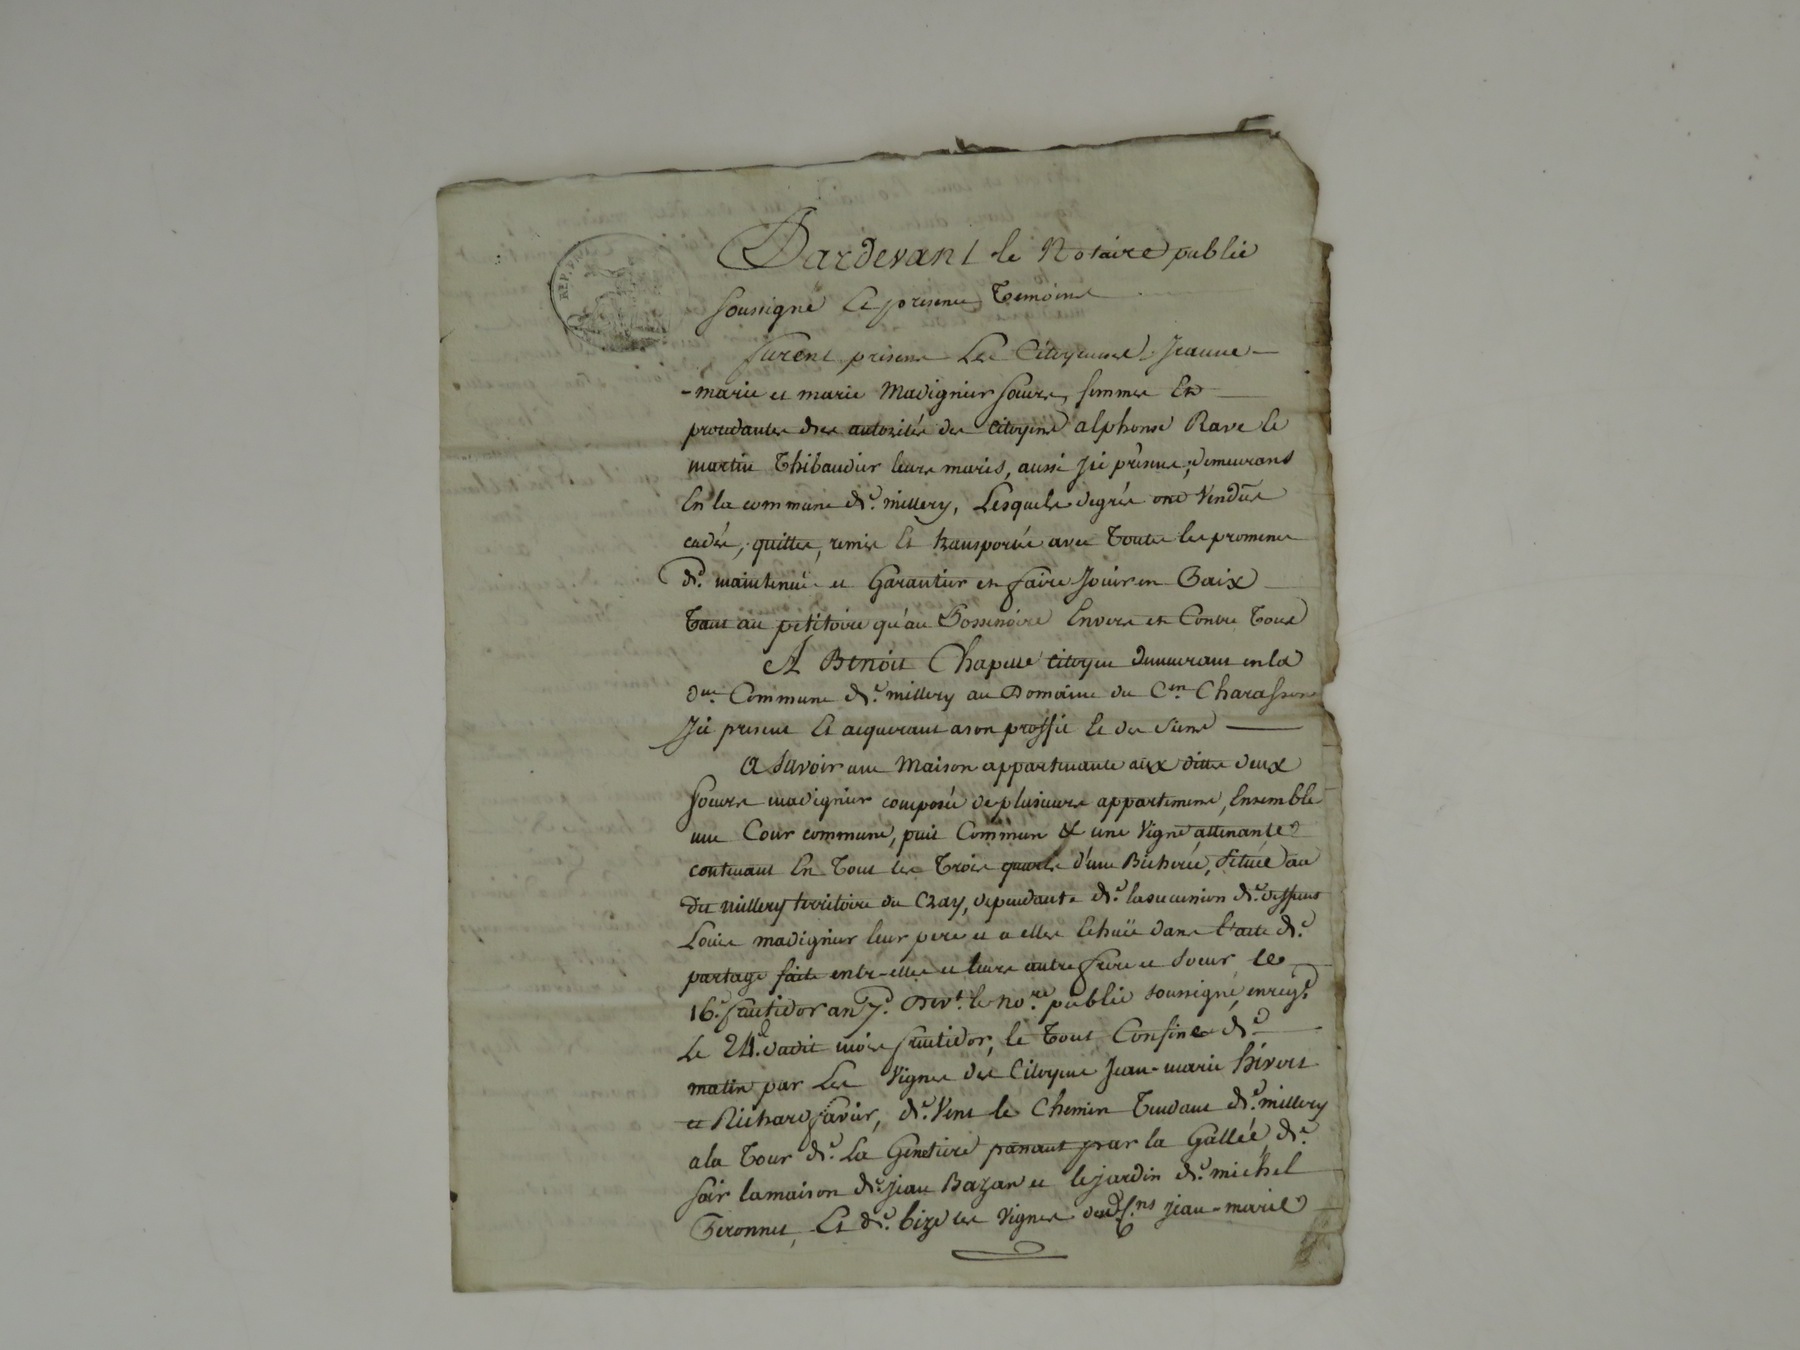 REP. FRA
Pardevant le Notaire public
soussigné Et presence Temoins
furent presens Les Citoyennes Jeanne
-marie et marie Madignier soeurs, femmes Et
procedantes des autorités des Citoyens alphonse Rave Et
martin Thibaudier leurs maris, aussi Ici présens, demeurans
En la commune de. millery, Lesquels degrés ont Vendus
cedés, quittés, remis Et transportés avec Toutes les promesses
de. maintenue et Garantier et faire Jouir en Paix
Tant au petitoire qu'au Possessoire Envers et Contre Tous
A Benoit Chapelle Citoyen demeurant en la
dte. Commune de. millery au Domaine du Cen Charasson
Ici present Et acquerant a son proffit Et des siens
a Savoir une Maison appartenante aux dittes deux
soeurs madignier composée de plusieurs appartemens, Ensemble
une Cour commune, puit Commun & une Vigne attenante
contenant En Tout les Trois quarts d'une Bicherée, Située au
dit millery territoire du Cray, dependante de. la succession de. deffunt
Louis madignier leur pere et a elles Echuë dans l'acte de.
partage faite entr-elles et leurs autre frere et Soeur, le
16e. fructidor an 7e. Devt. le nore. public soussigné, enregé
Le 24e. dudit mois fructidor, le Tout Confiné de
matin par Les Vignes des Citoyens Jean-marie
et Richard favier, de. Vent le Chemin Tendant de. millery
a la Tour de. La Genetiere passant par la Gallée, de.
soir la maison de. jean Bazan et le jardin de. michel
Peronnet, Et de. bize les Vignes des Cns jean-marie